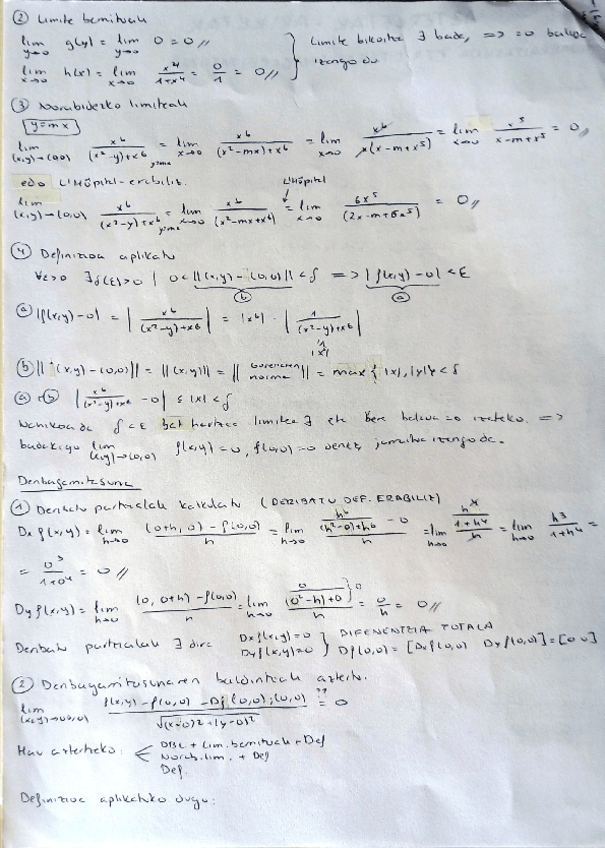 ② Limite berrituak
lim y→0 g(y) = lim y→0 0 = 0 //
lim x→0 h(x) = lim x→0 x⁴/(1+x⁴) = 0/1 = 0 // } Limite bikoitza ∃ bada, => =0 balioa izango du
③ Norabidezko limiteak
y=mx
lim (x,y)→(0,0) x⁶/((x²-y)+x⁶) =y=mx lim x→0 x⁶/((x²-mx)+x⁶) = lim x→0 x⁶/(x(x-m+x⁵)) = lim x→0 x⁵/(x-m+x⁵) = 0 //
edo L'Hôpital erabiliz. L'Hôpital
lim (x,y)→(0,0) x⁶/((x²-y)+x⁶) =y=mx lim x→0 x⁶/(x²-mx+x⁶) = lim x→0 6x⁵/(2x-m+6x⁵) = 0 //
④ Definizioa aplikatu
∀ε>0 ∃δ(ε)>0 | 0<||(x,y)-(0,0)||<δ => |f(x,y)-0|<ε
ⓑ ⓐ
ⓐ |f(x,y)-0| = | x⁶/((x²-y)+x⁶) | = |x⁶| · | 1/((x²-y)+x⁶) |
ⓑ ||(x,y)-(0,0)|| = ||(x,y)|| = || norma || = max{|x|,|y|} < δ
ⓐ ⓑ | x⁶/((x²-y)+x⁶) - 0 | ≤ |x| < δ
Nahikoa da δ<ε bat hartzea limitea ∃ eta bere balioa =0 izateko. =>
badakigu lim (x,y)→(0,0) f(x,y)=0, f(0,0)=0 denez, jarraitua izango da.
Deribagarritasuna
① Deribatu partzialak kalkulatu (DERIBATU DEF. ERABILIZ)
Dx f(x,y) = lim h→0 ((0+h,0)-f(0,0))/h = lim h→0 (h⁶/((h²-0)+h⁶) - 0)/h = lim h→0 (h⁴/(1+h⁴))/h = lim h→0 h³/(1+h⁴) =
= 0³/(1+0⁴) = 0 //
Dy f(x,y) = lim h→0 ((0,0+h)-f(0,0))/h = lim h→0 (0/((0²-h)+0))/h = 0/h = 0 //
Deribatu partzialak ∃ dira Dx f(x,y)=0 Dy f(x,y)=0 } DIFERENTZIA TOTALA Df(0,0) = [Dx f(0,0) Dy f(0,0)] = [0 0]
② Deribagarritasunaren baldintzak aztertu.
lim (x,y)→(0,0) (f(x,y)-f(0,0)-Df(0,0);(0,0))/√((x-0)²+(y-0)²) =?? 0
Hau aztertzeko: DBL + Lim. berrituak + Def
Norab. lim. + Def
Def.
Definizioa aplikatuko dugu: